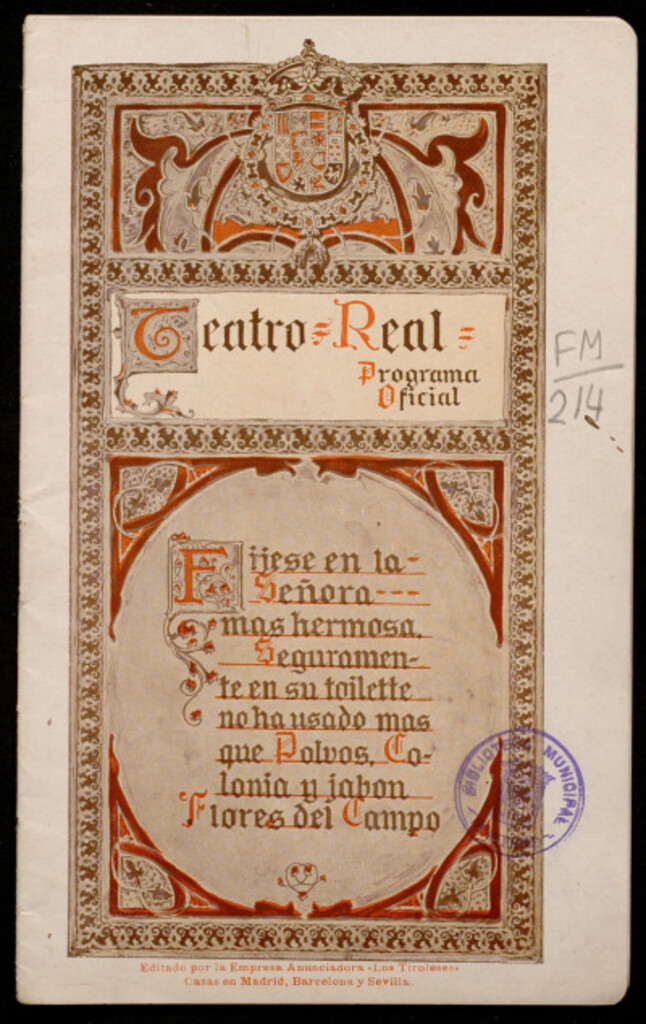 Teatro=Real=
Programa
Oficial
FM
214
Fijese en la-
Señora---
mas hermosa.
Seguramen-
te en su toilette
no ha usado mas
que Polvos, Co-
lonia y jabon
Flores del Campo
BIBLIOTECA MUNICIPAL
Editado por la Empresa Anunciadora «Los Tiroleses»
Casas en Madrid, Barcelona y Sevilla.